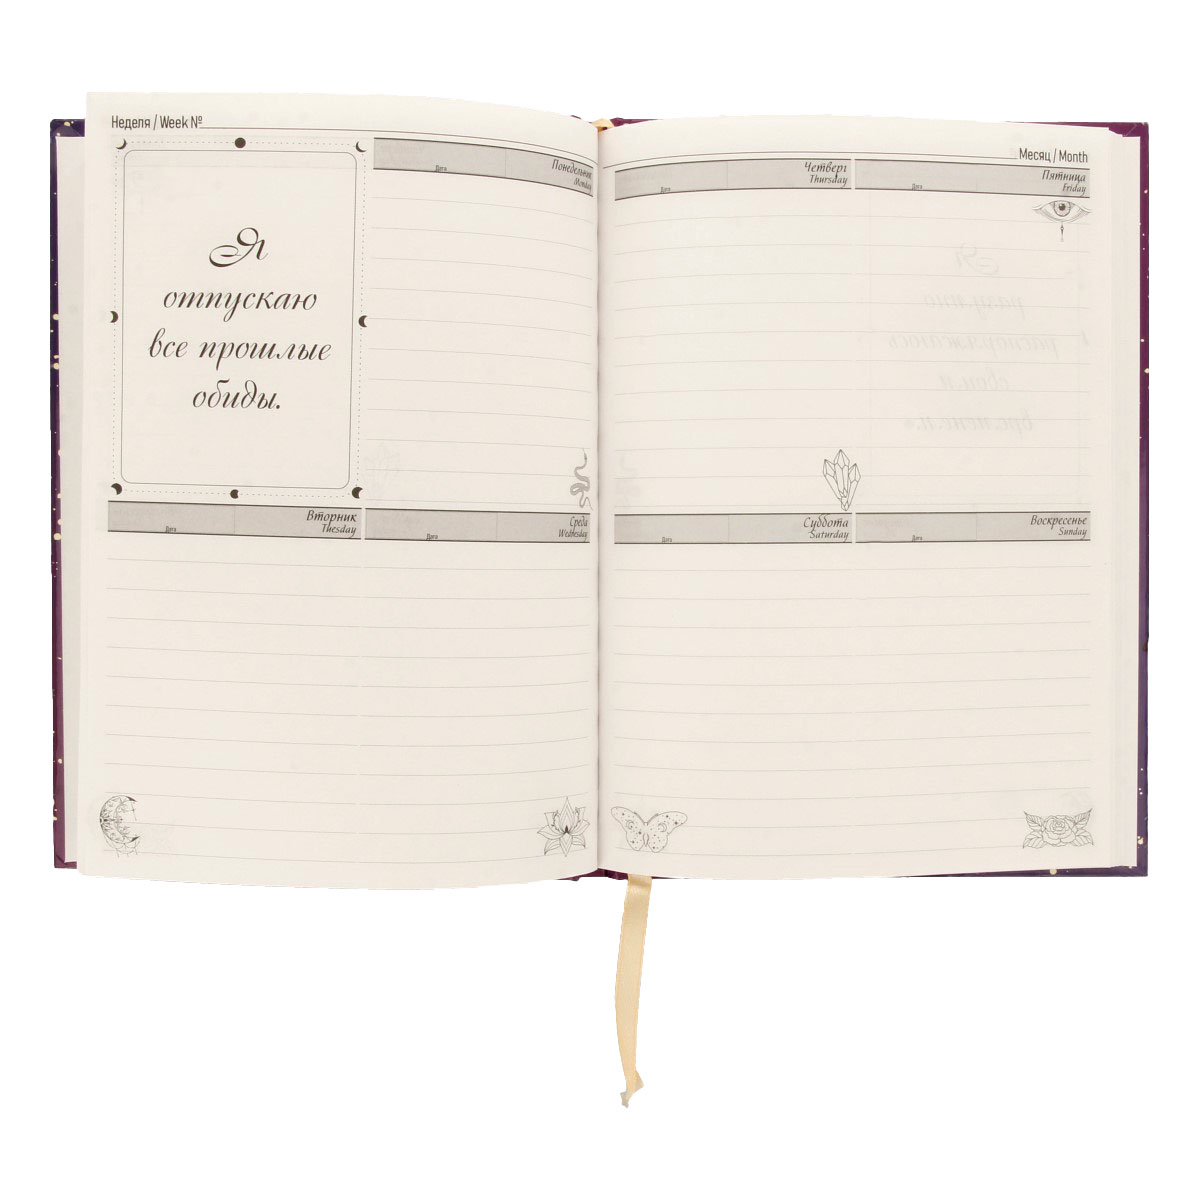 Неделя / Week №
Я
отпускаю
все прошлые
обиды.
Понедельник
Monday
Дата
Вторник
Tuesday
Дата
Среда
Wednesday
Дата
Месяц / Month
Четверг
Thursday
Дата
Пятница
Friday
Дата
Суббота
Saturday
Дата
Воскресенье
Sunday
Дата